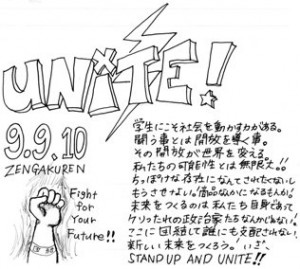 UNITE!
9.9.10
ZENGAKUREN
Fight
for
Your
Future!!
学生にこそ社会を動かす力がある。
闘う事とは開放を導く事。
その開放が世界を変える。
私たちの可能性とは無限大!!
ちっぽけな存在になんてされたくないし
もうさせやしない。商品なんかになるもんか。
未来をつくるのは私たち自身であって
クソったれの政治家たちなんかじゃない。
ここに団結して誰にも支配されない
新しい未来をつくろう。いざ、
STAND UP AND UNITE!!